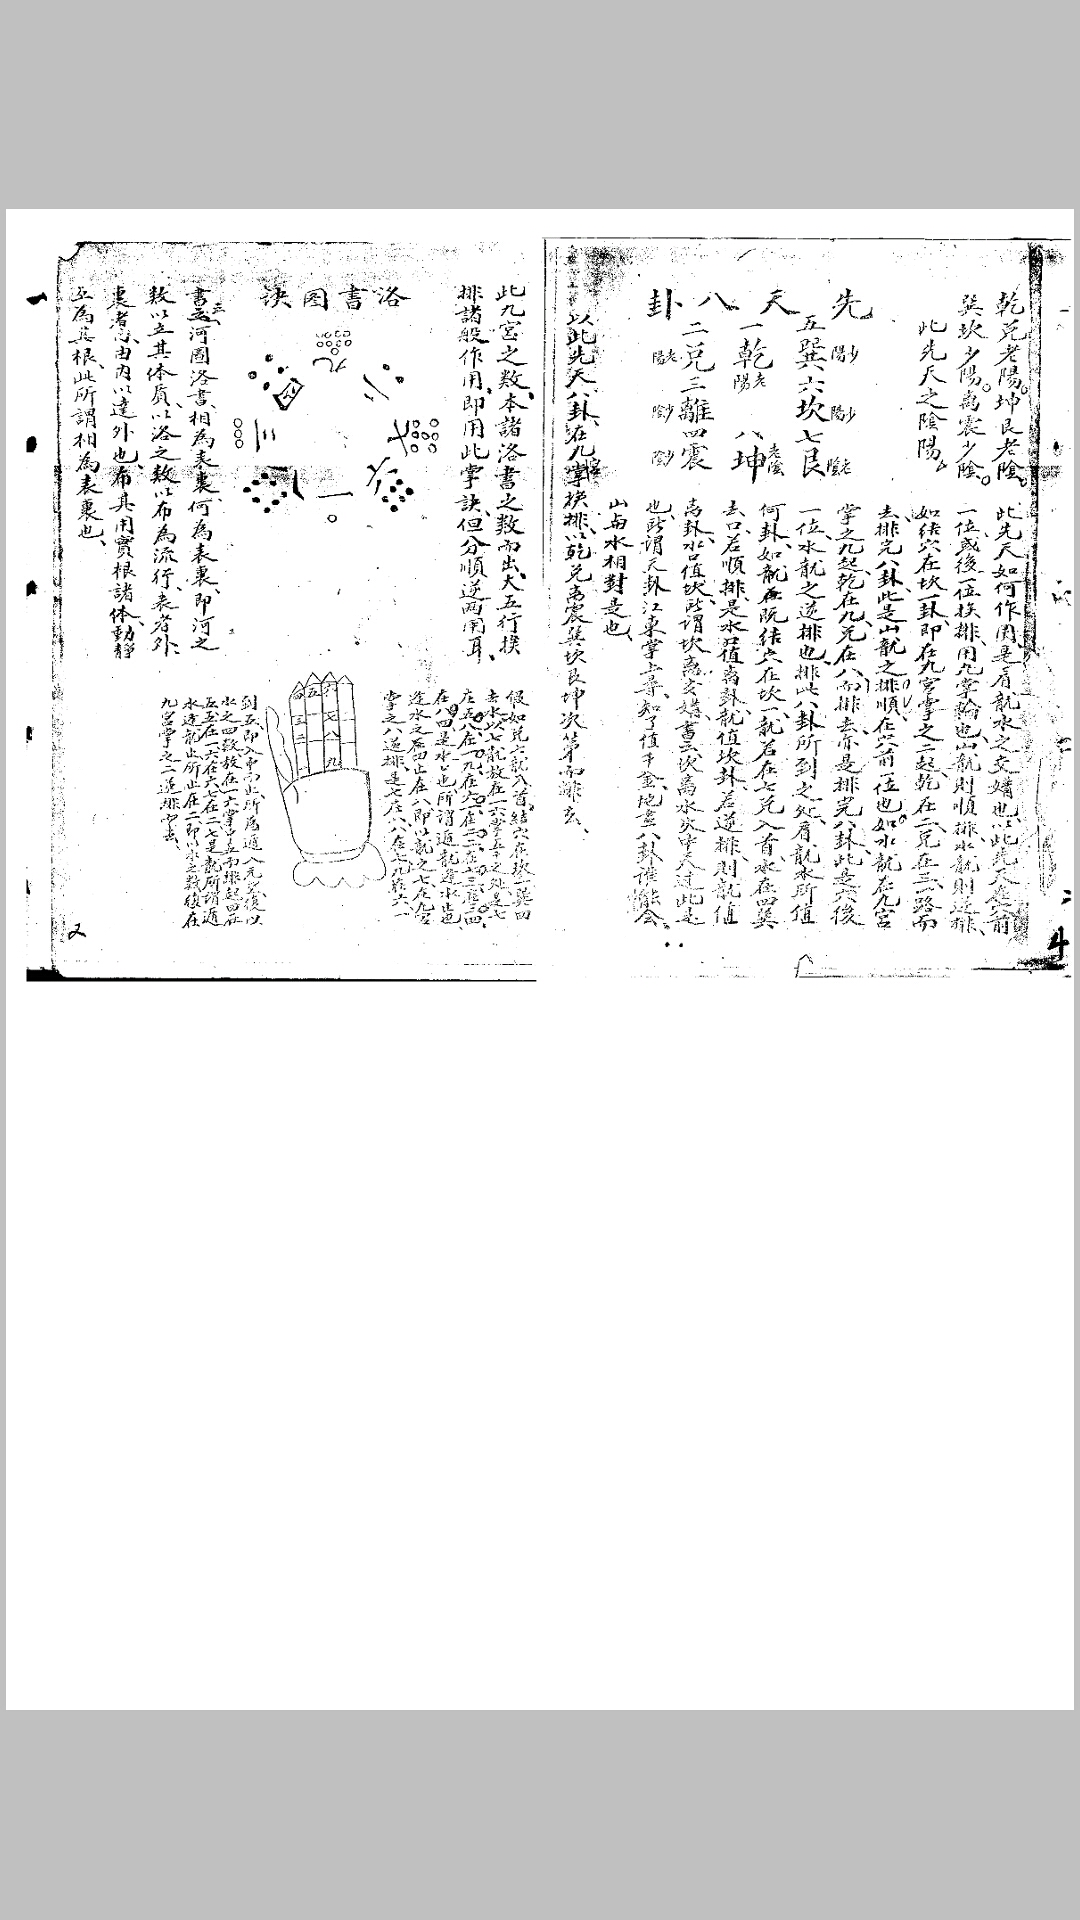 乾兌老陽坤艮老陰
巽坎少陽离震少陰
此先天之陰陽
先天八卦
少陽 少陽 老陰
五巽六坎七艮
一乾老陽 八坤老陰
二兌三離四震
老陽 少陰 少陰
此先天如何作用是看龍水之交媾也以此先天
一位或後一位挨排用九掌輪也山龍則順排水龍則逆排
如結穴在坎一卦即在九宮掌之二起乾在二兌在三一路而
去排完八卦此是山龍之排順在穴前一位也如水龍在九宮
掌之九起乾在九兌在八而排去亦是排完八卦此是穴後
一位水龍之逆排也排此八卦所到之処看龍水所值
何卦如龍既結穴在坎一龍若在七兌入首水在四巽
去口若順排是水口值离卦龍值坎卦若逆排則龍值
离卦水口值坎所謂坎离交媾書云坎离水火中天过此是
也所謂天卦江東掌上尋知了值千金地畫八卦誰能会
山与水相對是也
以此先天八卦在九宮掌挨排以乾兌离震巽坎艮坤次第而排去
此九宮之数本諸洛書之数而出大五行挨
排諸般作用即用此掌訣但分順逆兩用耳
洛書图訣
九
二
四
七
三
六
八
一
書云河圖洛書相為表裏何為表裏即河之
数以立其体质以洛之数以布為流行表者外
裏者由内以達外也布其用實根諸体動靜
互為其根此所謂相為表裏也
假如兌六龍入首結穴在坎一巽四
逆水之在四止在八即以龍之七在九宮
掌之八逆排是七在八八在七九在六一
四五六
三七
二八
一九
到五即入中而止所為遁入元空後以
水之四数放在一六掌之五而排起四在
五五在一六在六七在二七是龍所謂遁
水逢龍止所止在二即以水之数復在
九宮掌之二逆排而去
2
4